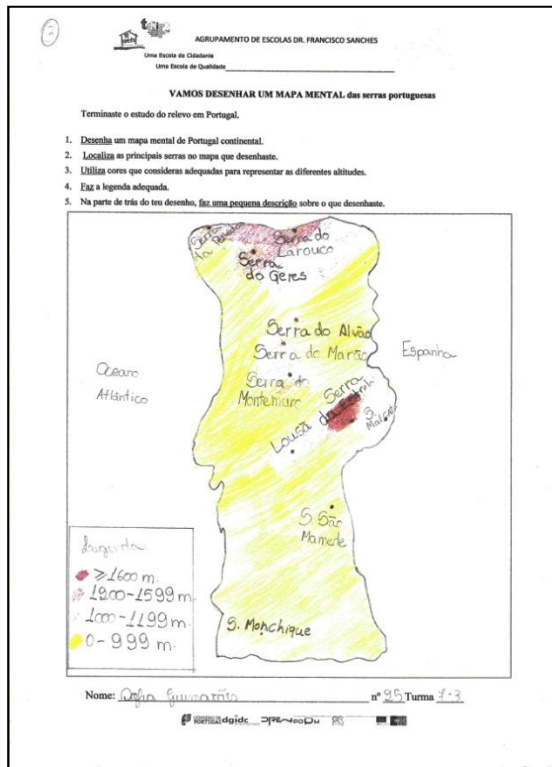 2
AGRUPAMENTO DE ESCOLAS DR. FRANCISCO SANCHES
Uma Escola de Cidadania
Uma Escola de Qualidade
VAMOS DESENHAR UM MAPA MENTAL das serras portuguesas
Terminaste o estudo do relevo em Portugal.
1. Desenha um mapa mental de Portugal continental.
2. Localiza as principais serras no mapa que desenhaste.
3. Utiliza cores que consideras adequadas para representar as diferentes altitudes.
4. Faz a legenda adequada.
5. Na parte de trás do teu desenho, faz uma pequena descrição sobre o que desenhaste.
Serra da
Serra do
Larouco
Serra
do Geres
Serra do Alvão
Serra do Marão
Serra do
Montemuro
Oceano
Atlântico
Espanha
Serra
da Estrela
Lousã
S.
S São
Mamede
S. Monchique
Legenda
≥1600 m.
1200-1599 m.
1000-1199 m.
0-999 m.
Nome: Guimarães nº 25 Turma 7-3
PORTUGAL dgidc